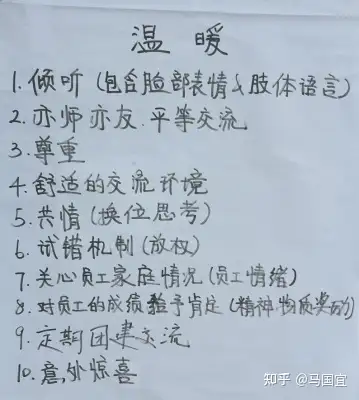 温暖
1. 倾听 (包含脸部表情&肢体语言)
2. 亦师亦友.平等交流
3. 尊重
4. 舒适的交流环境
5. 共情 (换位思考)
6. 试错机制 (放权)
7. 关心员工家庭情况 (员工情绪)
8. 对员工的成绩给予肯定 (精神.物质奖励)
9. 定期团建交流
10. 意外惊喜
知乎 @马国宜